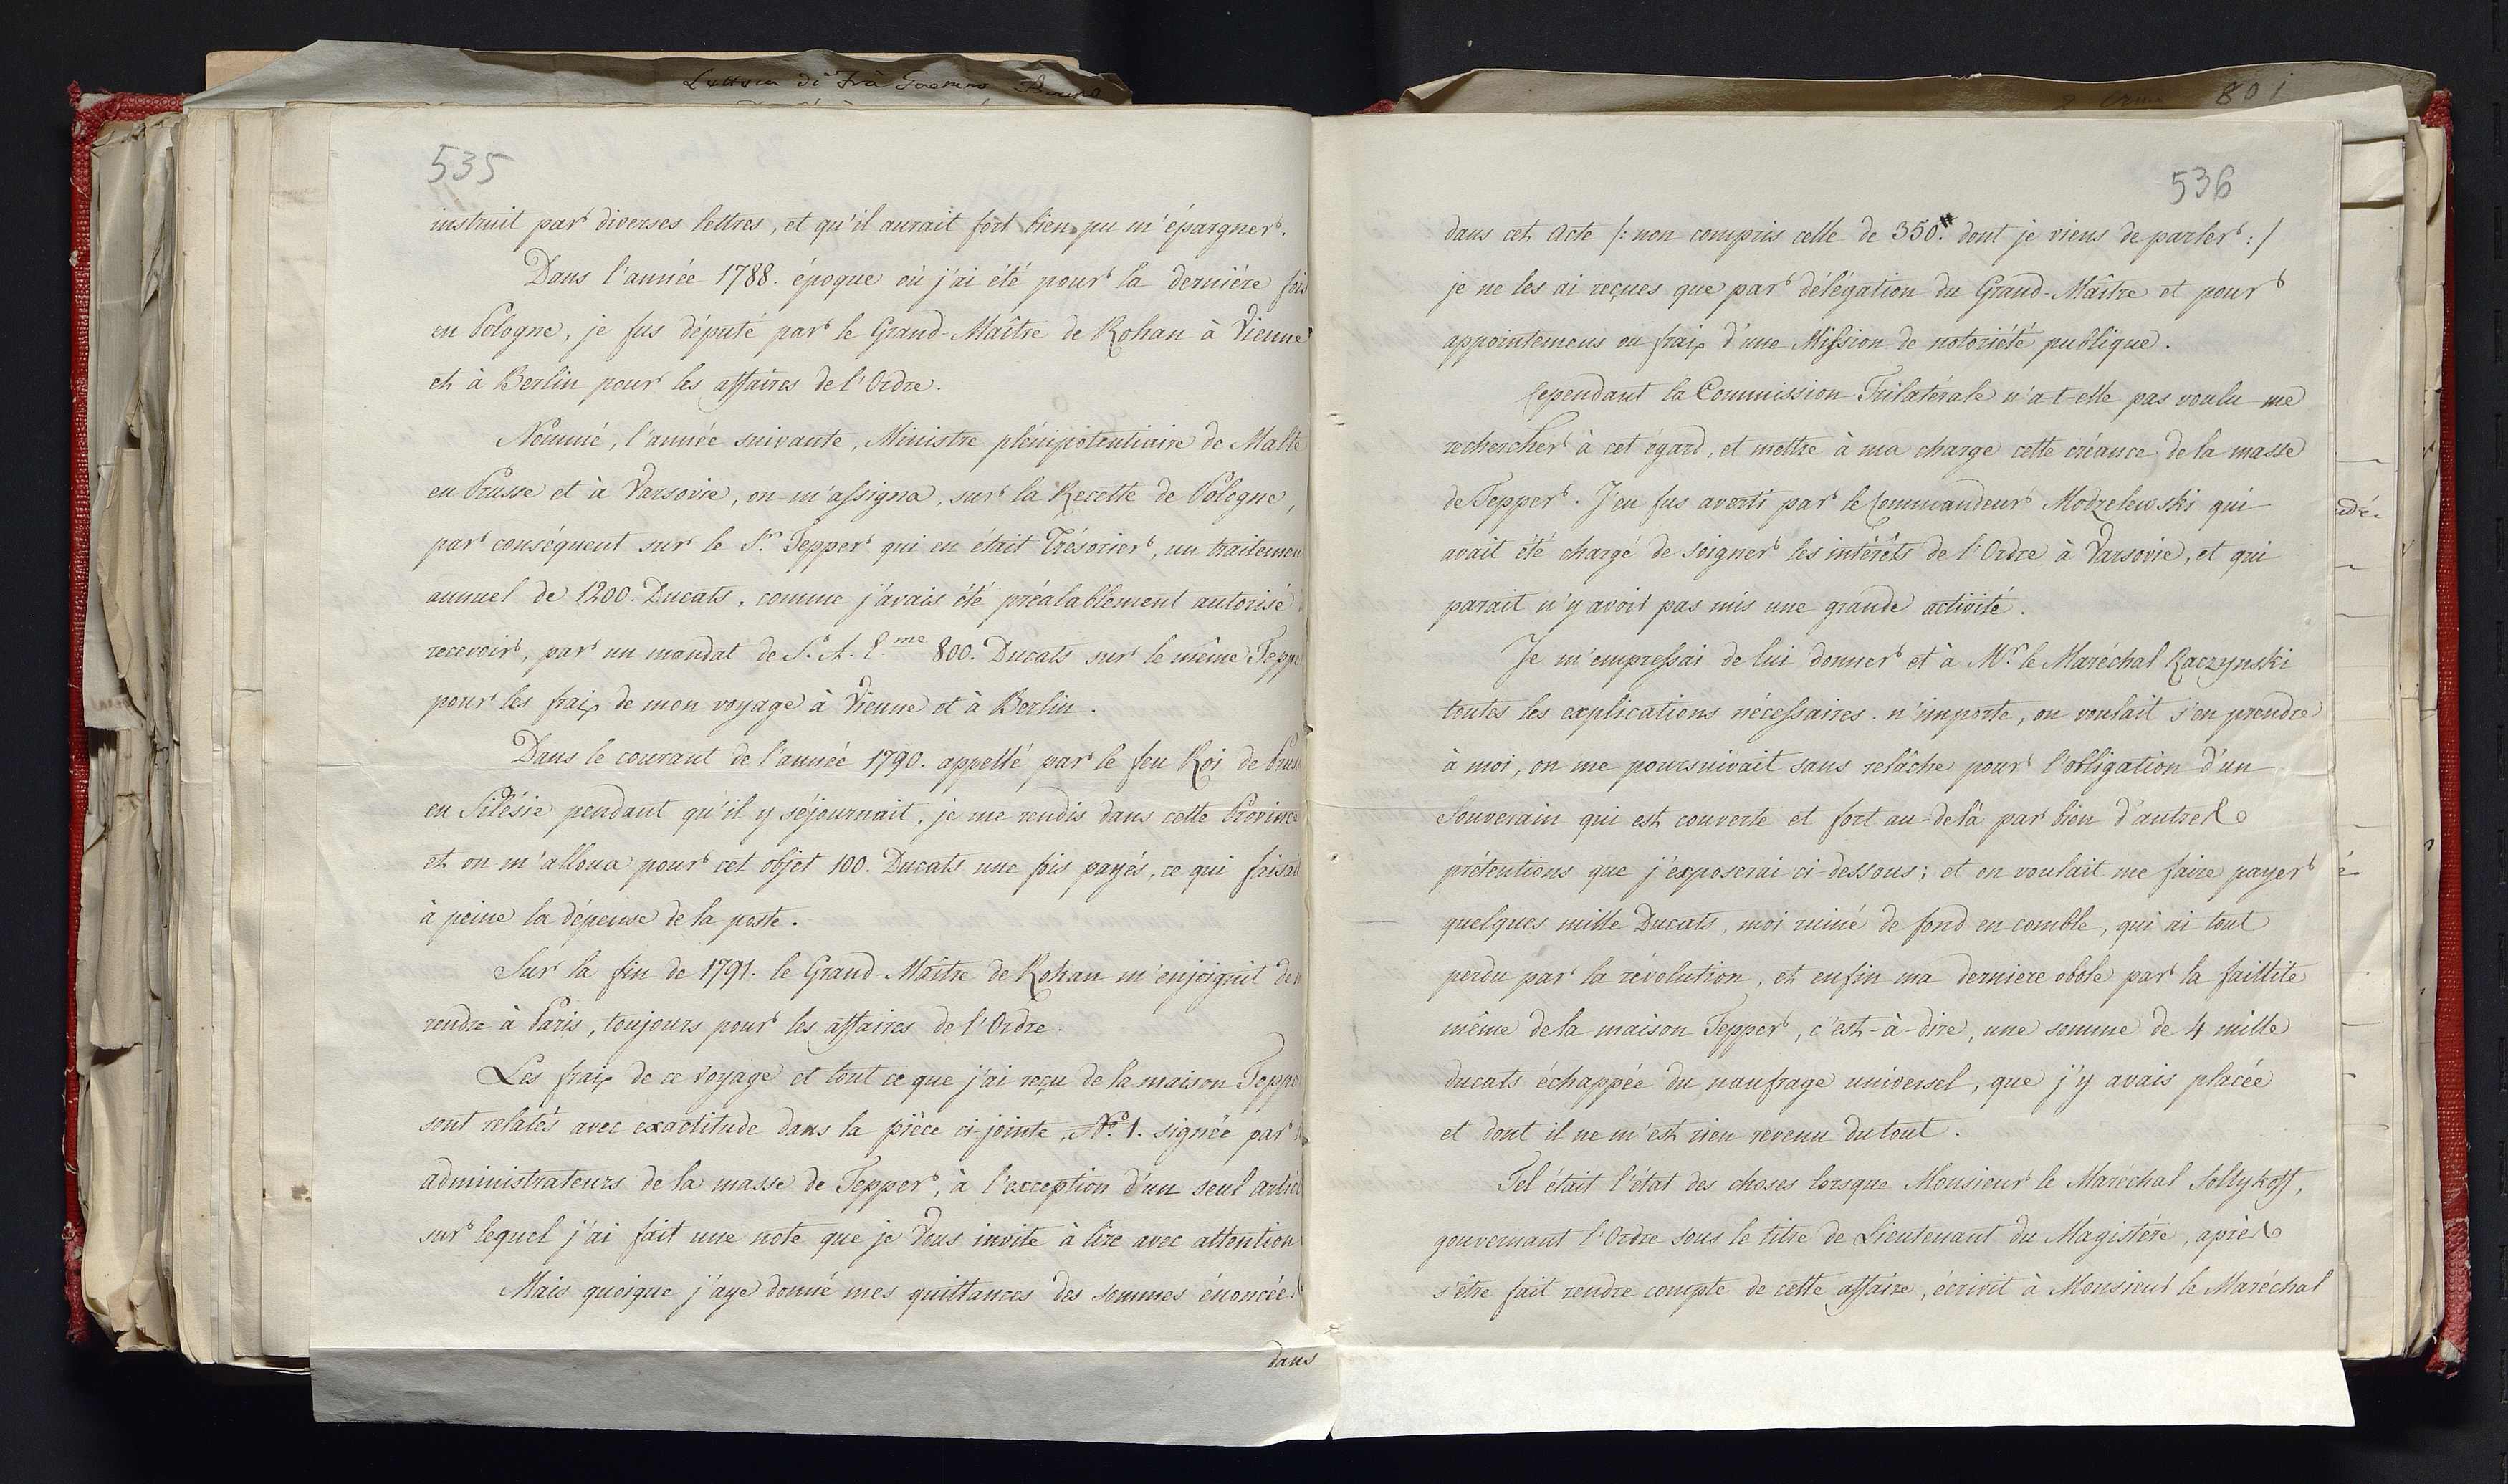 535
instruit par diverses lettres, et qu'il aurait fort bien pu m'épargner.
Dans l'année 1788. époque où j'ai été pour la derniére fois
en Pologne, je fus député par le Grand-Maître de Rohan à Vienne
et à Berlin pour les affaires de l'Ordre.
Nommé, l'année suivante, Ministre plénipotentiaire de Malte
en Prusse et à Varsovie, on m'assigna, sur la Recette de Pologne,
par conséquent sur le Sr. Tepper qui en était Trésorier, un traitement
annuel de 1200. Ducats, comme j'avais été préalablement autorisé
recevoir, par un mandat de S. A. E.me 800. Ducats sur le même Teppe
pour les fraix de mon voyage à Vienne et à Berlin.
Dans le courant de l'année 1790. appellé par le feu Roi de Prus
en Silésie pendant qu'il y séjournait, je me rendis dans cette Province
et on m'alloua pour cet objet 100. Ducats une fois payés, ce qui faisait
à peine la dépense de la poste.
Sur la fin de 1791. le Grand-Maître de Rohan m'enjoignit de
rendre à Paris, toujours pour les affaires de l'Ordre.
Les fraix de ce voyage et tout ce que j'ai reçu de la maison Teppe
sont relatés avec exactitude dans la pièce ci-jointe, No. 1. signée par
administrateurs de la masse de Tepper, à l'exception d'un seul articl
sur lequel j'ai fait une note que je Vous invite à lire avec attention
Mais quoique j'aye donné mes quittances des sommes énoncées
dans
801
536
dans cet Acte /: non compris celle de 350.# dont je viens de parler :/
je ne les ai reçues que par délégation du Grand-Maître et pour
appointemens ou fraix d'une Mission de notoriété publique.
Cependant la Commission Trilatérale n'a-t-elle pas voulu me
rechercher à cet égard, et mettre à ma charge cette créance de la masse
de Tepper. J'en fus averti par le Commandeur Modzelewski qui
avait été chargé de soigner les intérêts de l'Ordre à Varsovie, et qui
parait n'y avoir pas mis une grande activité.
Je m'empressai de lui donner et à Mr. le Maréchal Raczynski
toutes les explications nécessaires. n'importe, on voulait s'en prendre
à moi, on me poursuivait sans relâche pour l'obligation d'un
Souverain qui est couverte et fort au-delà par bien d'autres
prétentions que j'exposerai ci-dessous; et on voulait me faire payer
quelques mille Ducats, moi ruiné de fond en comble, qui ai tout
perdu par la révolution, et enfin ma derniere obole par la faillite
même de la maison Tepper, c'est-à-dire, une somme de 4 mille
ducats échappée du naufrage universel, que j'y avais placée
et dont il ne m'est rien revenu du tout.
Tel était l'état des choses lorsque Monsieur le Maréchal Soltykoff,
gouvernant l'Ordre sous le titre de Lieutenant du Magistère, après
s'être fait rendre compte de cette affaire, écrivit à Monsieur le Maréchal